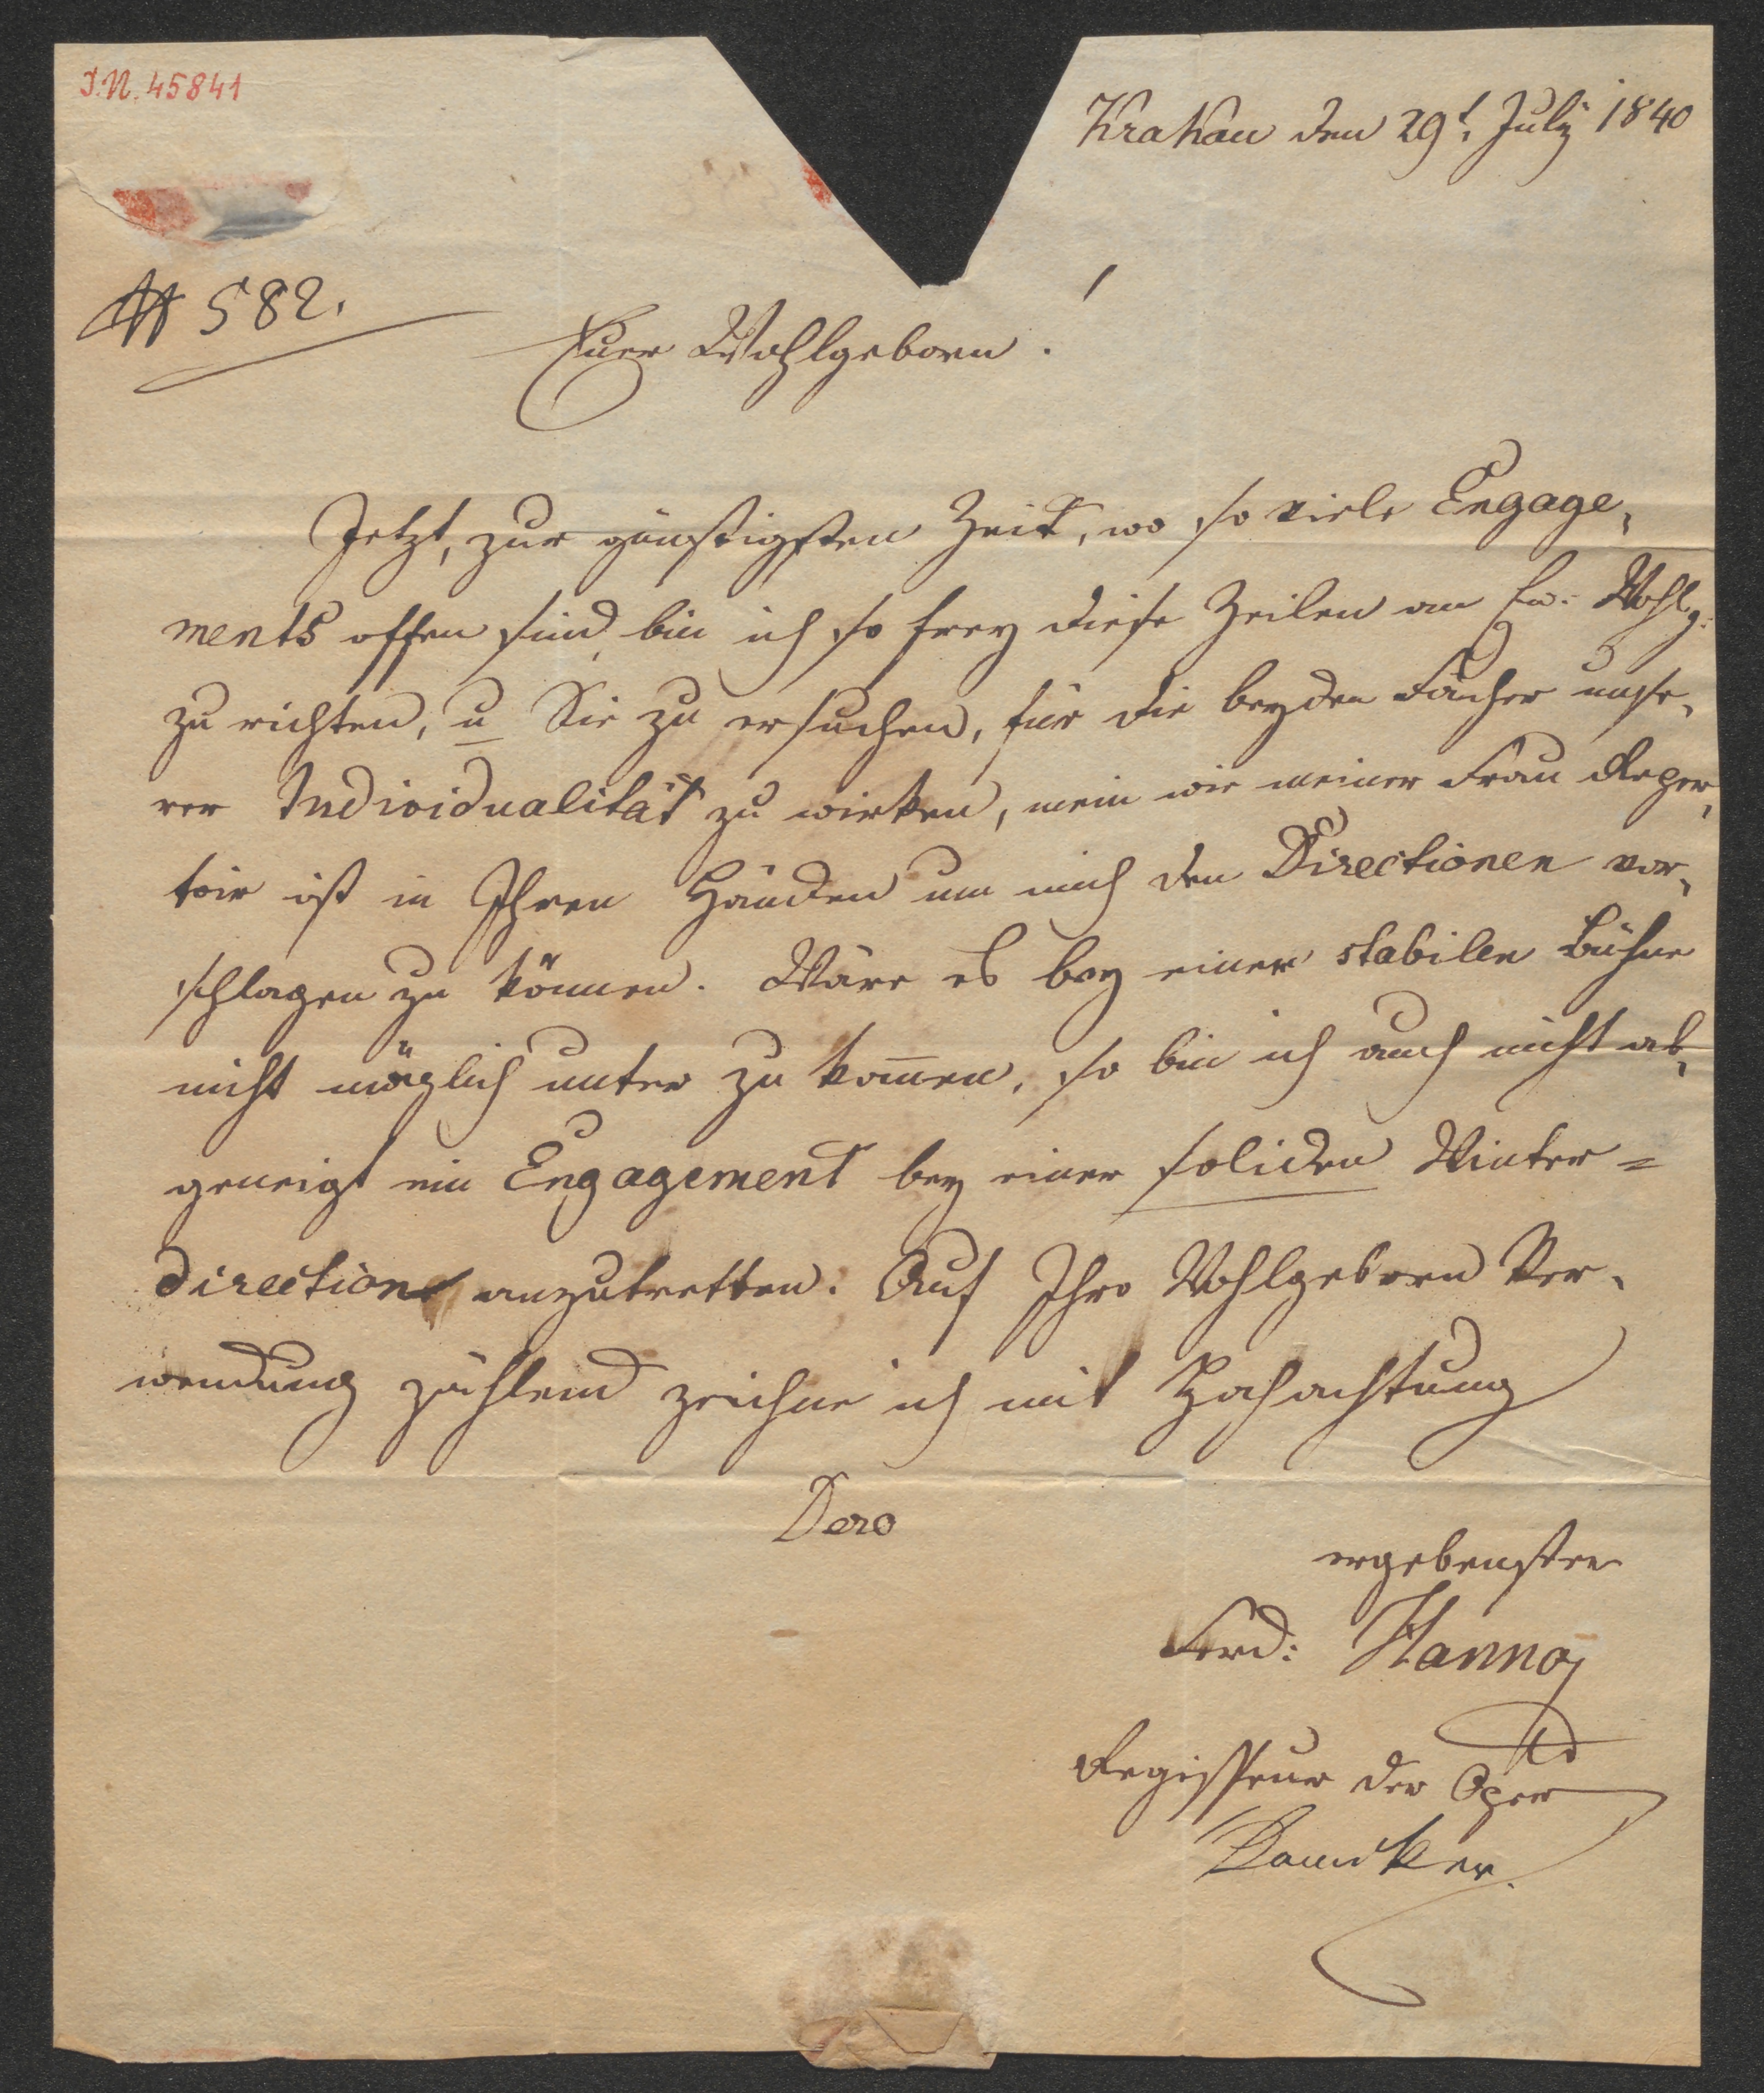 I.N. 45841
Krakau den 29t. July 1840
# 582.
Euer Wohlgeboren!
Jetzt, zur günstigsten Zeit, wo so viele Engage,
ments offen sind, bin ich so frey diese Zeilen an Ew: Wohlg:
zu richten, u Sie zu ersuchen, für die beyden Fächer unse,
rer Individualität zu wirken, mein wie meiner Frau Reper,
toir ist in Ihren Händen um mich den Directionen vor,
schlagen zu können. Wäre es bey einer stabilen Bühne
nicht möglich unter zu kom̅en, so bin ich auch nicht ab,
geneigt ein Engagement bey einer soliden Winter=
direction anzutretten. Auf Ihro Wohlgeboren Ver,
wendung zählend zeichne ich mit Hochachtung
Dero
ergebenster
Ferd: Hanno
Regisseur der Oper